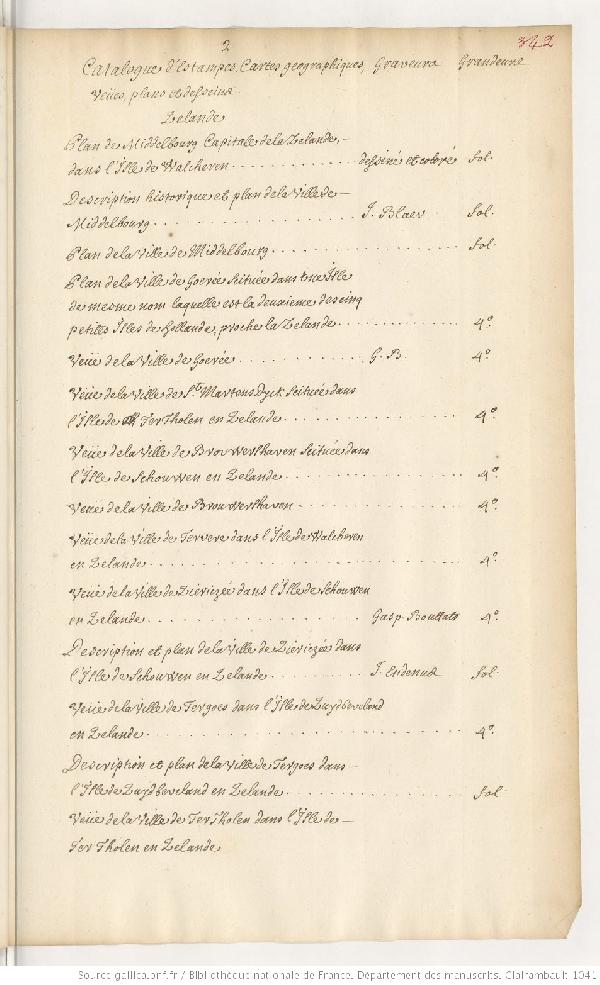 2
342
Catalogue d'Estampes, Cartes geographiques, Graveurs Grandeurs
Veües, plans et desseins
Zelande
Plan de Middelbourg Capitale de la Zelande,
dans l'Isle de Walcheren . . . . . . . . . . . . dessiné et coloré fol.
Description historique et plan de la Ville de
Middelbourg . . . . . . . . . . . . J. Blaeu fol.
Plan de la Ville de Middelbourg . . . . . . . . . . . . fol.
Plan de la Ville de Goerée Scituée dans une Isle
de mesme nom laquelle est la deuxieme des cinq
petites Isles de Hollande, proche la Zelande . . . . . . . . . . . . 4°
Veüe de la Ville de Goerée . . . . . . . . . . . . G. B. 4°
Veüe de la Ville de St. Martens Dyck Scituée dans
l'Isle de Ter Tholen en Zelande . . . . . . . . . . . . 4°
Veüe de la Ville de Brouwershaven Scituée dans
l'Isle de Schouwen en Zelande . . . . . . . . . . . . 4°
Veüe de la Ville de Brouwershaven . . . . . . . . . . . . 4°
Veüe de la Ville de Tervere dans l'Isle de Walcheren
en Zelande . . . . . . . . . . . . 4°
Veüe de la Ville de Ziericzée dans l'Isle de Schouwen
en Zelande . . . . . . . . . . . . Gasp. Bouttats 4°
Description et plan de la Ville de Ziericzée dans
l'Isle de Schouwen en Zelande . . . . . . . . . . . . J. fol.
Veüe de la Ville de Tergoes dans l'Isle de Zuydbeveland
en Zelande . . . . . . . . . . . . 4°
Description et plan de la Ville de Tergoes dans
l'Isle de Zuydbeveland en Zelande . . . . . . . . . . . . fol.
Veüe de la Ville de Ter Tholen dans l'Isle de
Ter Tholen en Zelande
Source gallica.bnf.fr / Bibliothèque nationale de France. Département des manuscrits. Clairambault 1041